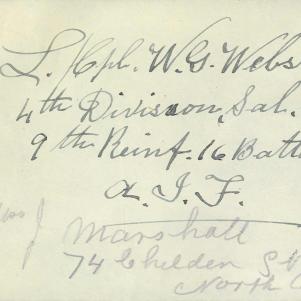 L/Cpl. W. G. Webs
4th Division, Sal.
9th Reinf. 16 Batt
A. I. F.
Miss J
Marshall
74 Chelden St
North